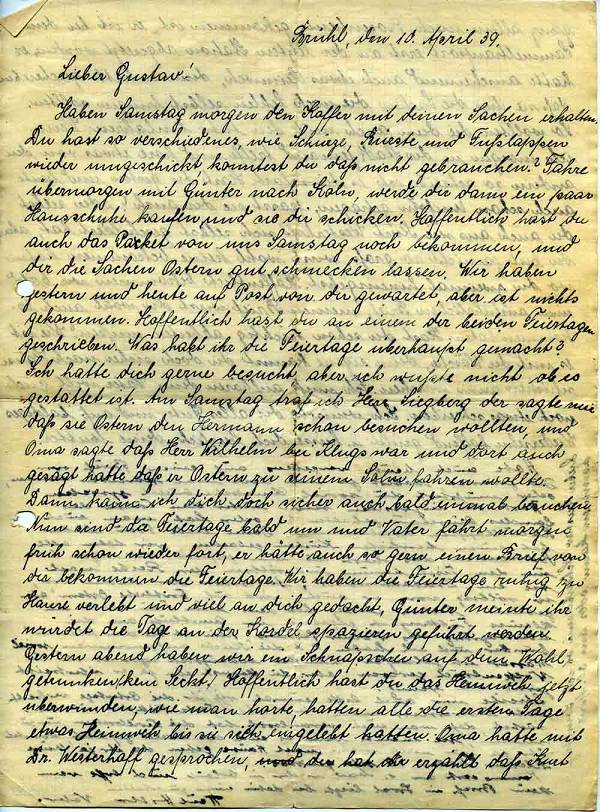 Brühl, den 10. April 39.
Lieber Gustav!
Haben Samstag morgen den Koffer mit deinen Sachen erhalten.
Du hast so verschiedenes, wie Schürze, Bürste und Fußlappen
wieder umgeschickt, konntest du daß nicht gebrauchen? Fahre
übermorgen mit Günter nach Köln, werde dir dann ein paar
Hausschuhe kaufen, und sie dir schicken. Hoffentlich hast du
auch das Packet von uns Samstag noch bekommen, und
dir die Sachen Ostern gut schmecken lassen. Wir haben
gestern und heute auf Post von dir gewartet, aber ist nichts
gekommen. Hoffentlich hast du an einem der beiden Feiertagen
geschrieben. Was habt ihr die Feiertage überhaupt gemacht?
Ich hätte dich gerne besucht, aber ich wußte nicht ob es
gestattet ist. Am Samstag traf ich Herr Siegberg der sagte mir
daß sie Ostern den Hermann schon besuchen wollten, und
Oma sagte daß Herr Wilhelm bei Klugs war und dort auch
gesagt hatte daß er Ostern zu seinem Sohn fahren wollte.
Dann kann ich dich doch sicher auch bald einmal besuchen.
Nun sind da Feiertage bald um und Vater fährt morgen
früh schon wieder fort, er hätte auch so gern einen Brief von
dir bekommen die Feiertage. Wir haben die Feiertage ruhig zu
Hause verlebt und viel an dich gedacht, Günter meinte ihr
würdet die Tage an der Kordel spazieren geführt werden.
Gestern abend haben wir ein Schnäpschen auf dein Wohl
getrunken (kein Seckt.) Hoffentlich hast du das Heimweh jetzt
überwunden, wie man hörte, hatten alle die ersten Tage
etwas Heimweh bis sie sich eingelebt hatten. Oma hatte mit
Dr. Westerhoff gesprochen, und der hat ihr erzählt daß Kurt